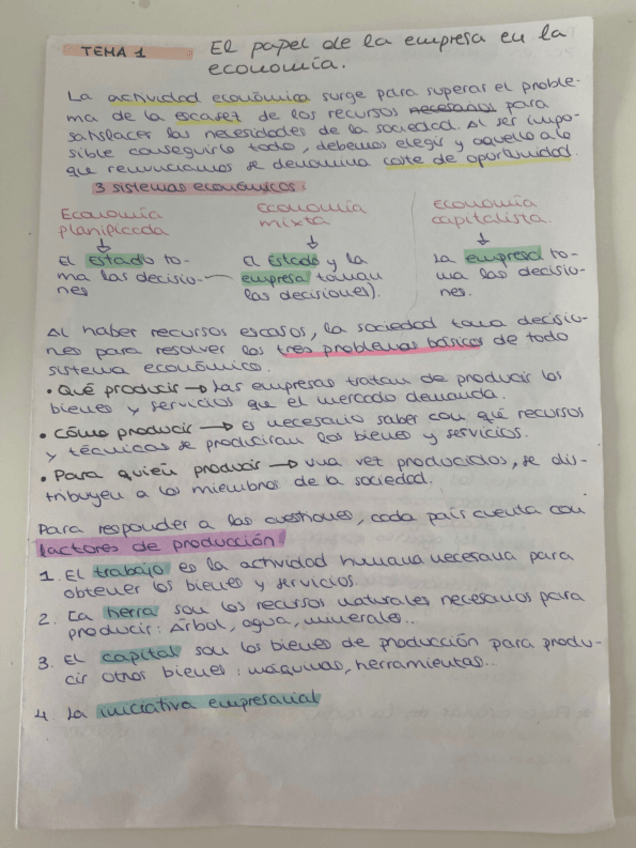 TEMA 1
El papel de la empresa en la
economía.
La actividad económica surge para superar el proble-
ma de la escasez de los recursos necesarios para
satisfacer las necesidades de la sociedad. Al ser impo-
sible conseguirlo todo, debemos elegir y aquello a lo
que renunciamos se denomina coste de oportunidad.
3 sistemas económicos:
Economía
planificada
El Estado to-
ma las decisio-
nes
economía
mixta
El Estado y la
empresa toman
las decisiones).
economía
capitalista.
La empresa to-
ma las decisio-
nes.
Al haber recursos escasos, la sociedad toma decisio-
nes para resolver los tres problemas básicos de todo
sistema económico.
• Qué producir → Las empresas tratan de producir los
bienes y servicios que el mercado demanda.
• Cómo producir → es necesario saber con qué recursos
y técnicas se produciran los bienes y servicios.
• Para quién producir → una vez producidos, se dis-
tribuyen a los miembros de la sociedad.
Para responder a las cuestiones, cada país cuenta con
factores de producción:
1. El trabajo es la actividad humana necesaria para
obtener los bienes y servicios.
2. La tierra son los recursos naturales necesarios para
producir: Árbol, agua, minerales...
3. El capital son los bienes de producción para produ-
cir otros bienes: máquinas, herramientas...
4. La iniciativa empresarial